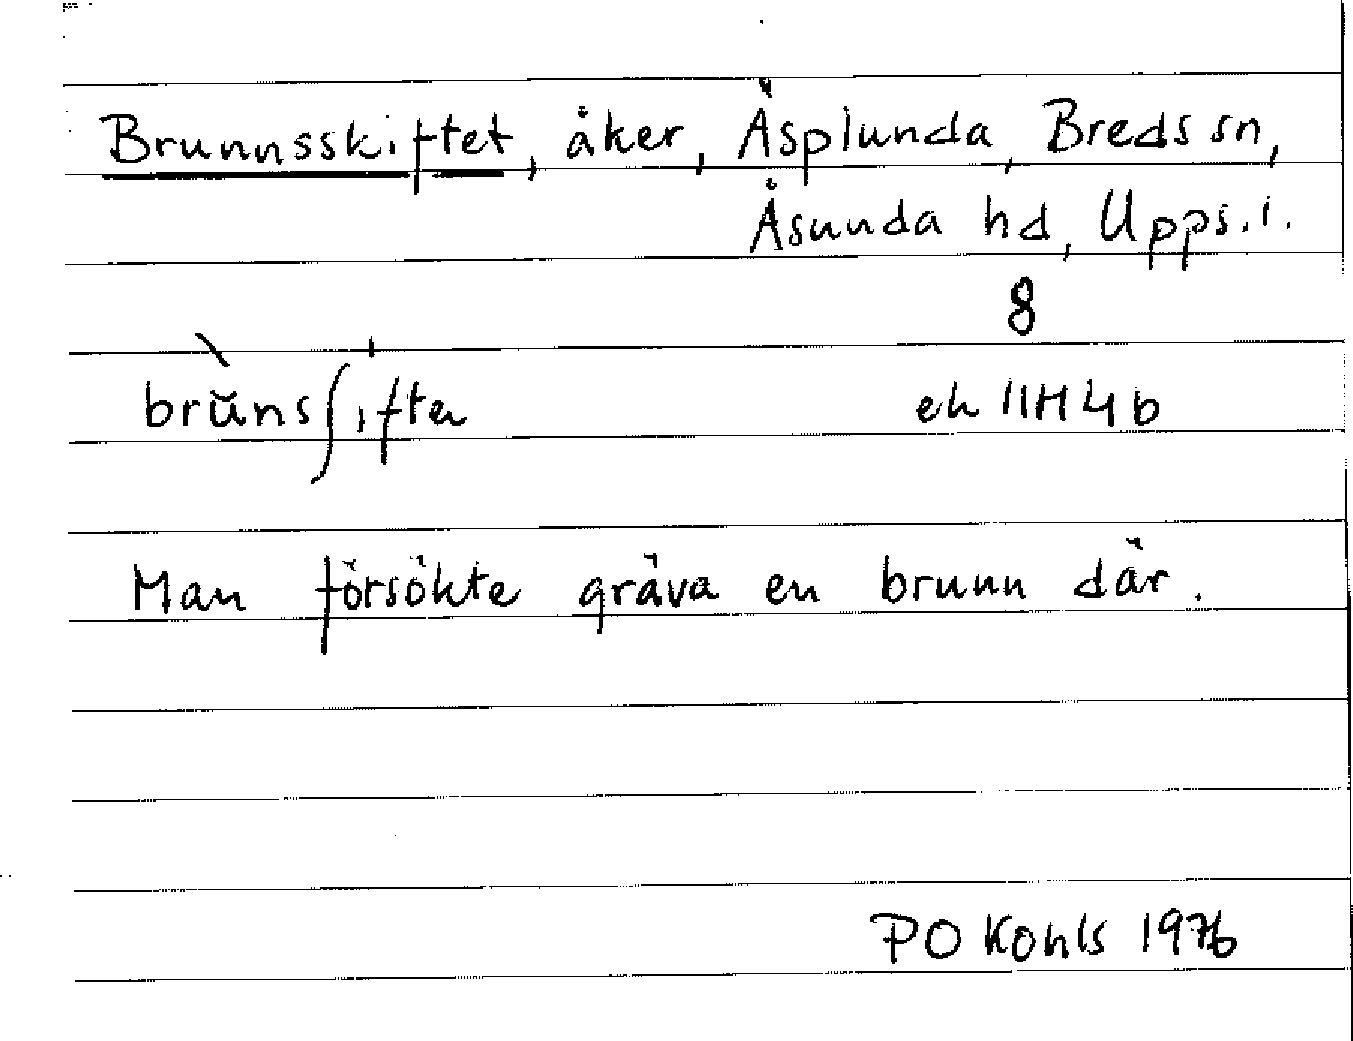 Brunnsskiftet, åker, Äsplunda, Breds sn,
Åsunda hd, Upps. l.
8
brŭnsʃıftɐ ek 11H4b
Man försökte gräva en brunn där.
PO Kohls 1976